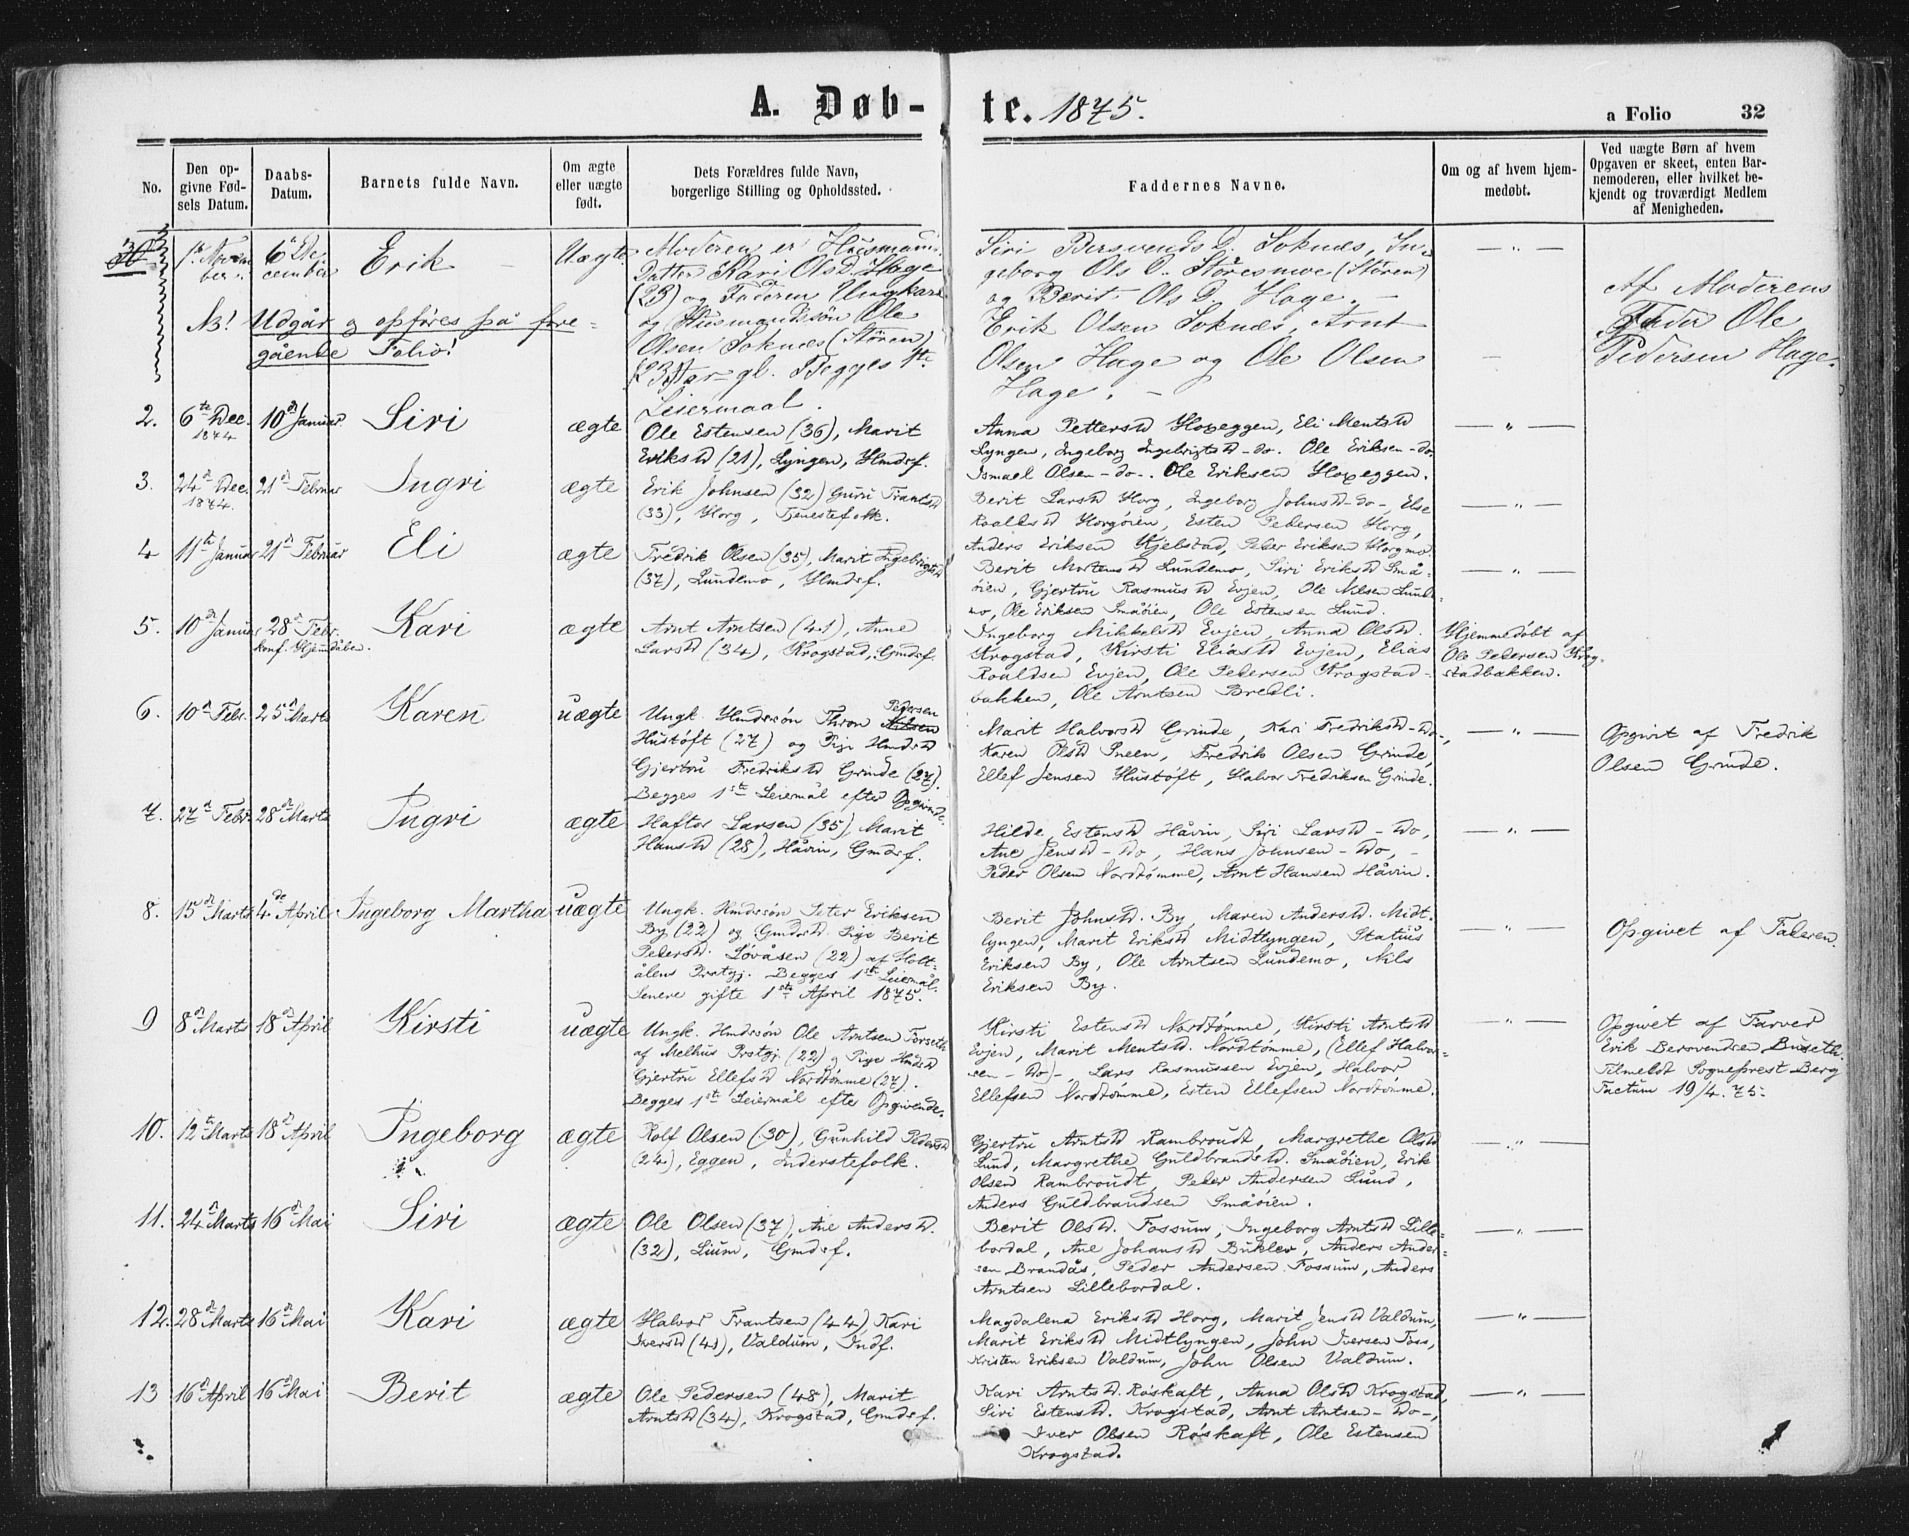 A. Døb-te. 1875.
a Folio 32
No.
Den op-
givne Fød-
sels Datum.
Daabs-
Datum.
Barnets fulde Navn.
Om ægte
eller uægte
født.
Dets Forældres fulde Navn,
borgerlige Stilling og Opholdssted.
Faddernes Navne.
Om og af hvem hjem-
medøbt.
Ved uægte Børn af hvem
Opgaven er skeet, enten Bar-
nemoderen, eller hvilket be-
kjendt og troværdigt Medlem
af Menigheden.
1ste Novem-
ber
6te De-
cember
Erik
Uægte
Moderen er Husmands
Datter Kari OlsD. Hage
(23) og Faderen Ungkarl
og Husmandssøn Ole
Olsen Soknæs (Støren)
23 Aar gl. Begges 1te
Leiermaal.
Siri BersvendsD. Soknæs, In-
geborg OlsD. Støresmoe (Støren)
og Berit OlsD. Hage. -
Erik Olsen Soknæs, Arnt
Olsen Hage og Ole Olsen
Hage. -
— " —
Af Moderens
Fader Ole
Pedersen Hage.
NB! Udgår og opføres på fore-
gående Folio!
2. 6te Dec.
1874
10de Januar
Siri
ægte
Ole Estensen (36), Marit
Eriksd (21), Lyngen, Hmdsf.
Anna Pettersd Hoxeggen, Eli Mentsd
Lyngen, Ingeborg Ingebrigtsd - do. Ole Eriksen - do.
Ismael Olsen - do -. Ole Eriksen Hoxeggen.
— " —
3. 24de Dec.
1874.
21de Februar
Ingri
ægte
Erik Johnsen (32) Guru Frantsd
(33), Horg, Tjenestefolk.
Berit Larsd Horg, Ingeborg Johnsd - do -, Else
Roaldsd Horgøien, Esten Pedersen Horg,
Anders Eriksen Kjelstad, Peder Eriksen Horgmo.
— " —
4 11te Januar
21de Februar
Eli
ægte
Fredrik Olsen (35), Marit Ingebrigtsd
(37), Lundemo, Hmdsf.
Berit Mortensd Lundemo, Siri Eriksd Små-
øien, Gjertru Rasmusd Evjen, Ole Nilsen Lunde-
mo, Ole Eriksen Småøien, Ole Estensen Lund.
— " —
5. 10de Januar
28de Febr.
konf. Hjemdåben.
Kari
ægte
Arnt Arntsen (41), Anne
Larsd (34), Krogstad, Gmdsf.
Ingeborg Mikkelsd Evjen, Anna Olsd.
Krogstad, Kirsti Eliasd Evjen, Elias
Roaldsen Evjen, Ole Pedersen Krogstad-
bakken, Ole Arntsen Bredli.
Hjemmedøbt af
Ole Pedersen Krog-
stadbakken.
6. 10de Febr.
25de Marts
Karen
uægte
Pedersen
Ungk. Hmdssøn Thron Nilsen
Hustøft (27) og Pige Hmdsd
Gjertru Fredriksd Grinde (27).
Begges 1ste Leiermål efter Opgivende.
Marit Halvorsd Grinde, Kari Fredriksd - Do -,
Karen Olsd Sneen, Fredrik Olsen Grinde,
Ellef Jensen Hustøft, Halvor Fredriksen Grinde.
— " —
Opgivet af Fredrik
Olsen Grinde.
7. 27de Febr.
28de Marts
Ingri
ægte
Haftor Larsen (35), Marit
Hansd (28), Håvin, Gmdsf.
Hilde Estensd Håvin, Siri Larsd - Do,
Ane Jensd - Do, Hans Johnsen - Do, -
Peder Olsen Nordtømme, Arnt Hansen Håvin.
— " —
8. 15de Marts
4de April
Ingeborg Martha
uægte
Ungk. Hmdssøn Peter Eriksen
By (22) og Gmdsd. Pige Berit
Pedersd. Løvåsen (22) af Holt-
ålens Prstgj. Begges 1ste Leiermål.
Senere gifte 1ste April 1875.
Berit Johnsd. By, Maren Andersd. Midt-
lyngen, Marit Eriksd Midtlyngen, Statius
Eriksen By, Ole Arntsen Lundemo, Nils
Eriksen By.
— " —
Opgivet af Faderen.
9 8de Marts
18de April
Kirsti
uægte
Ungk. Hmdssøn Ole Arntsen Forseth
af Melhus Prstgj. (22) og Pige Hmdsd
Gjertru Ellefsd Nordtømme (27).
Begges 1ste Leiermål efter Opgivende.
Kirsti Estensd Nordtømme, Kirsti Arntsd
Evjen, Marit Mentsd. Nordtømme, (Ellef Halvor-
sen - Do) - Lars Rasmussen Evjen, Halvor
Ellefsen Nordtømme, Esten Ellefsen Nordtømme.
— " —
Opgivet af Farver
Erik Bersvendsen Buseth.
Tilmeldt Sogneprest Berg
Factum 19/4. 75.
10. 12te Marts
18de April
Ingeborg
ægte
Rolf Olsen (30), Gunhild Pedersd
(24), Eggen, Inderstefolk.
Gjertru Arntsd Rambroudt, Margrethe Olsd
Lund, Margrethe Guldbrandsd. Småøien, Erik
Olsen Rambroudt, Peder Andersen Lund,
Anders Guldbrandsen Småøien.
— " —
11. 24de Marts
16de Mai
Siri
ægte
Ole Olsen (37), Ane Andersd.
(32), Lium, Gmdsf.
Berit Olsd. Fossum, Ingeborg Arntsd Lille-
bordal, Ane Johansd Bukler, Anders Ander-
sen Brandås, Peder Andersen Fossum, Anders
Arntsen Lillebordal.
— " —
12. 28de Marts
16de Mai
Kari
ægte
Halvor Frantsen (44) Kari
Iversd (41), Valdum, Indf.
Magdalena Eriksd Horg, Marit Jensd Valdum,
Marit Eriksd Midtlyngen, John Iversen Foss,
Kristen Eriksen Valdum, John Olsen Valdum.
— " —
13 16de April
16de Mai
Berit
ægte
Ole Pedersen (48), Marit
Arntsd (34), Krogstad, Gmdsf.
Kari Arntsd. Røskaft, Anna Olsd Krogstad,
Siri Estensd. Krogstad, Arnt Arntsen - Do -,
Iver Olsen Røskaft, Ole Estensen
Krogstad.
— " —